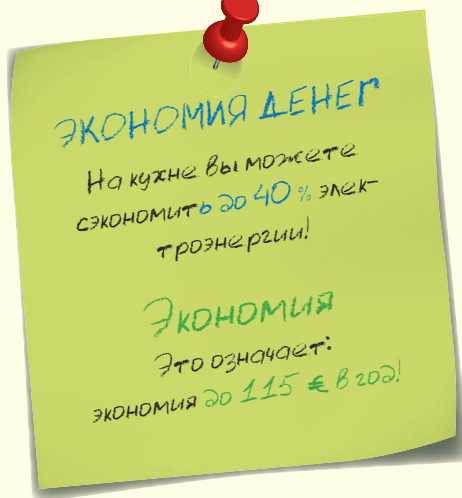 ЭКОНОМИЯ ДЕНЕГ
На кухне вы можете
сэкономить до 40 % элек-
троэнергии!
Экономия
Это означает:
экономия до 115 € в год!